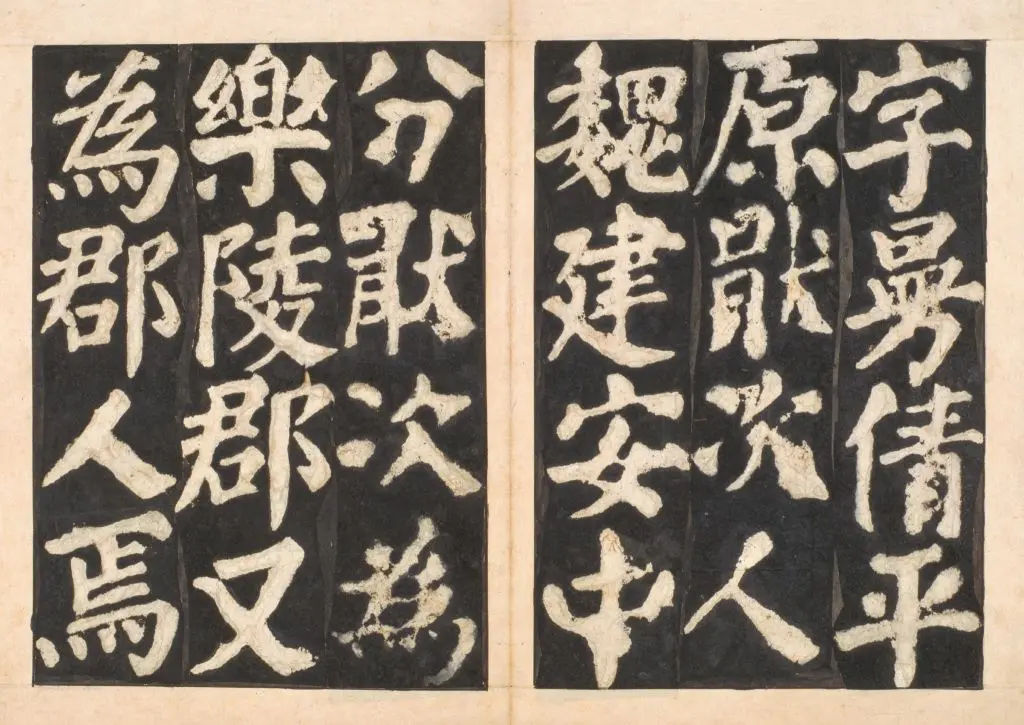 字曼倩平
原猒次人
魏建安中
分猒次為
樂陵郡又
為郡人焉